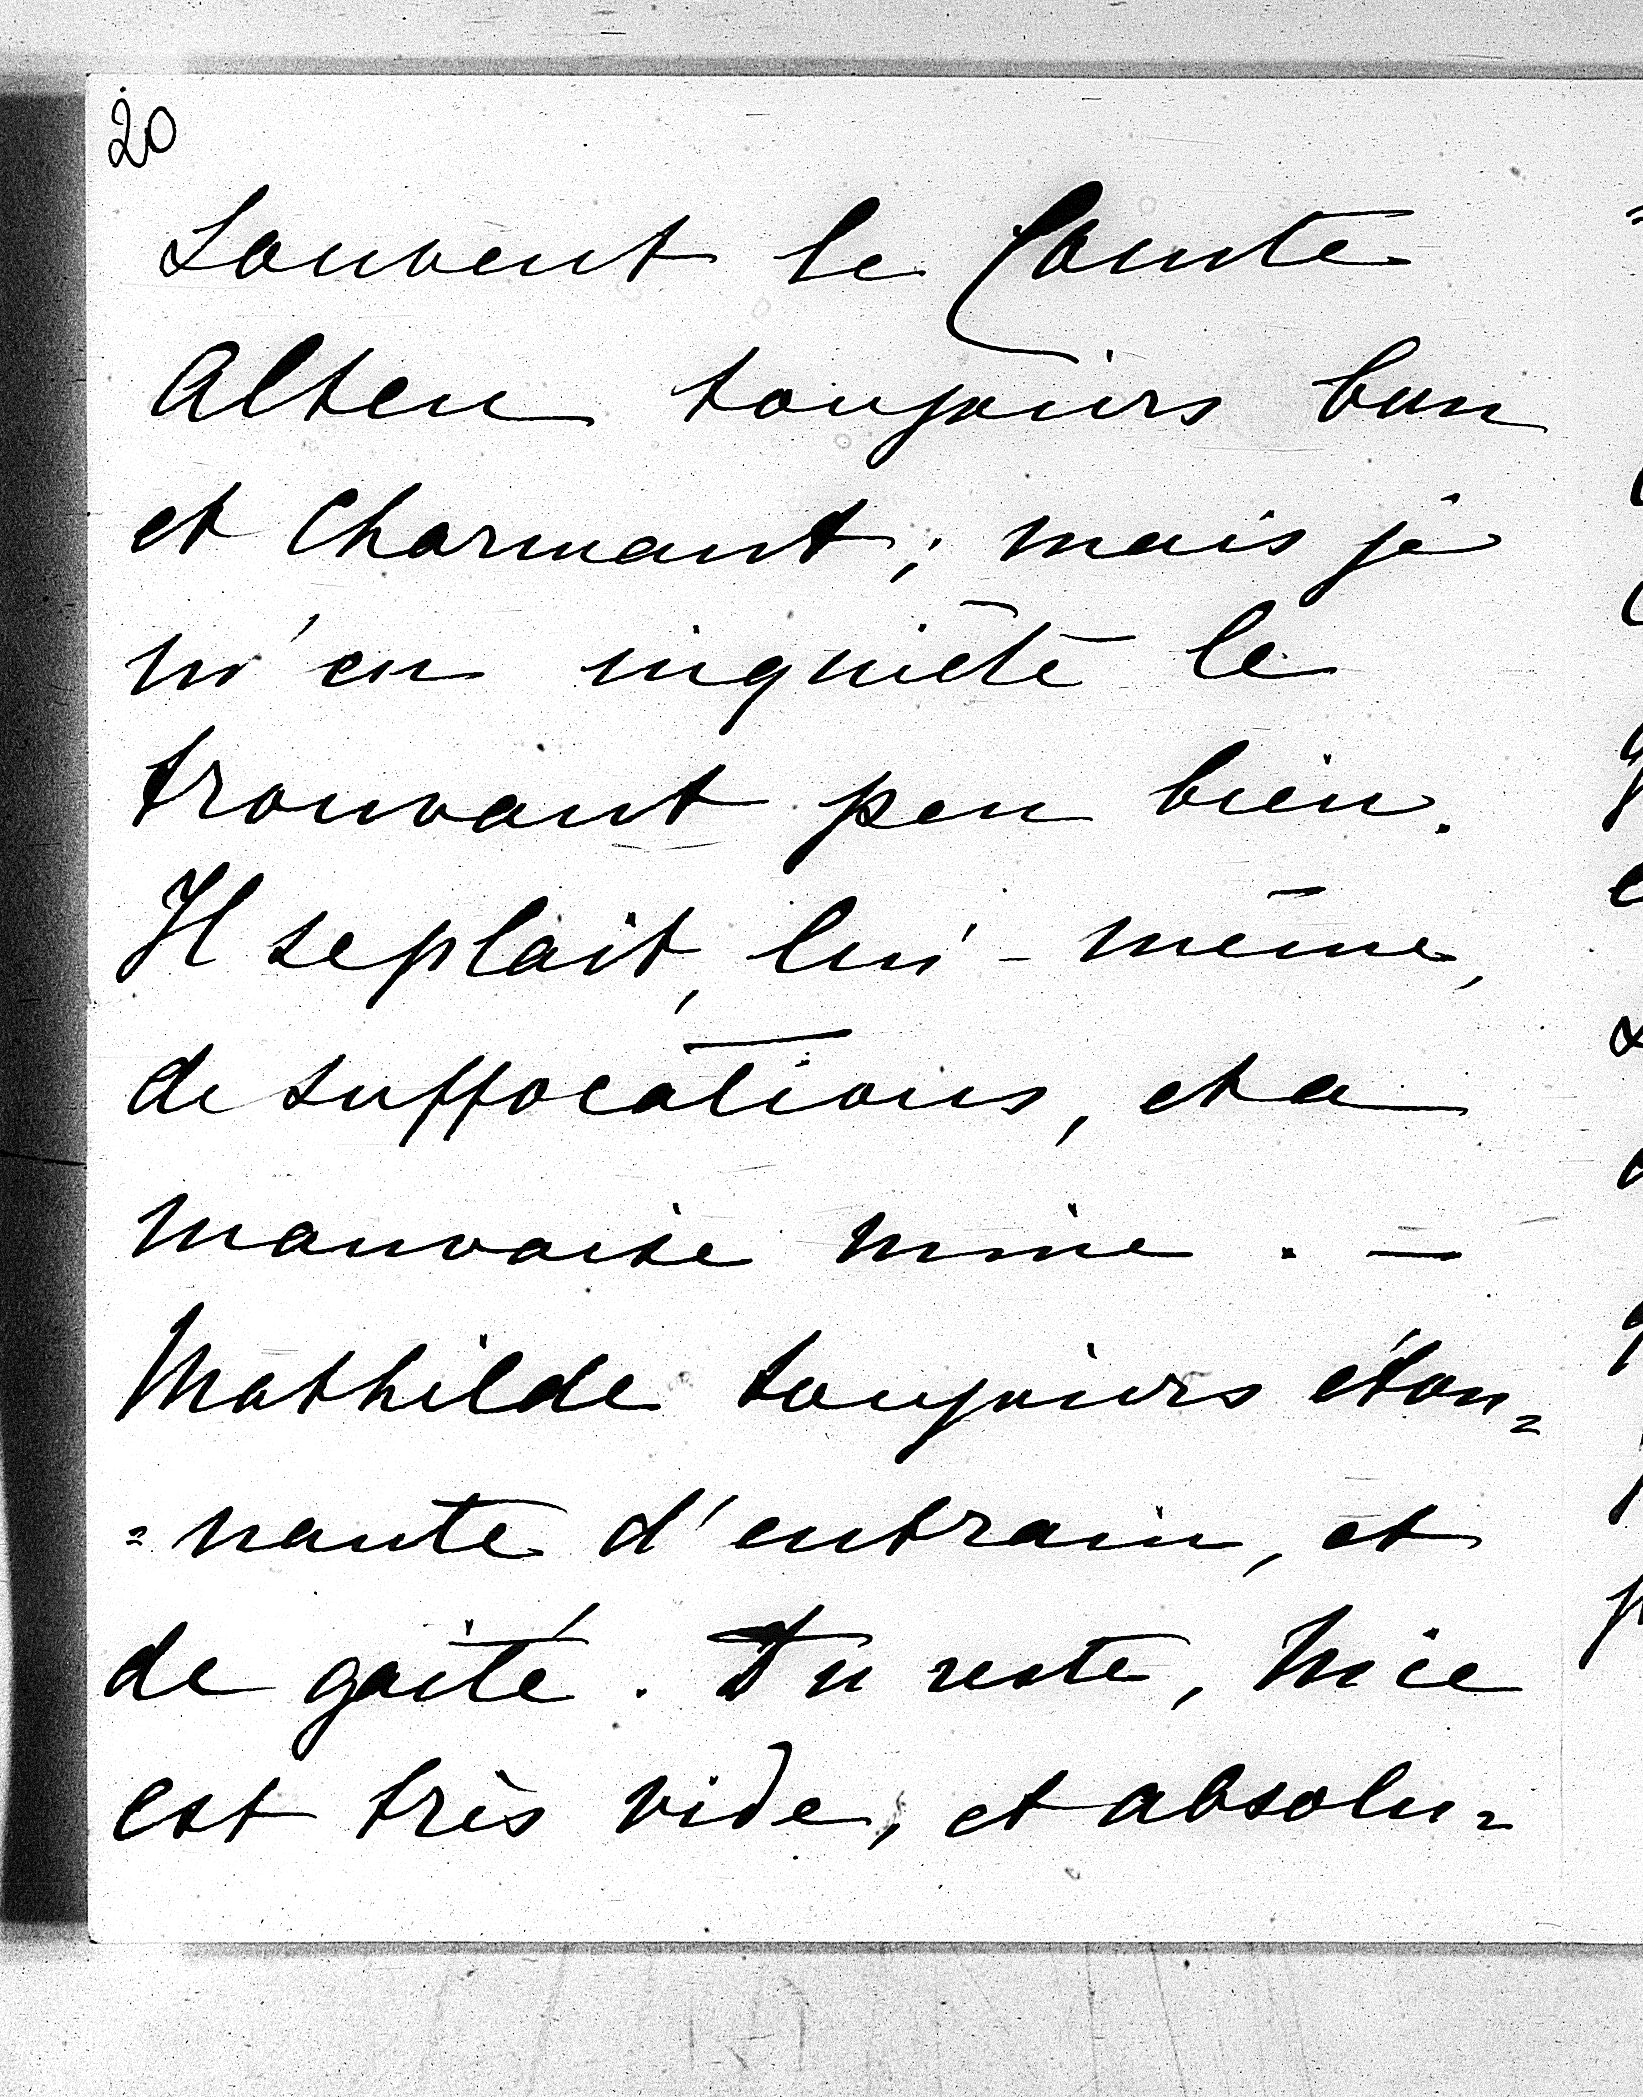 20
Souvent le Comte
Alten toujours bon
et Charmant; mais je
m'en inquiète le
trouvant peu bien.
Il se plait, lui-même,
de suffocations, et a
mauvaise mine. —
Mathilde toujours éton=
=nante d'entrain, et
de gaité. Du reste, Nice
est très vide, et absolu=